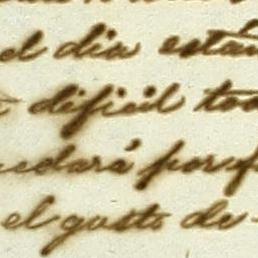 el dia estan
dificil too
uedará por f
el gusto de